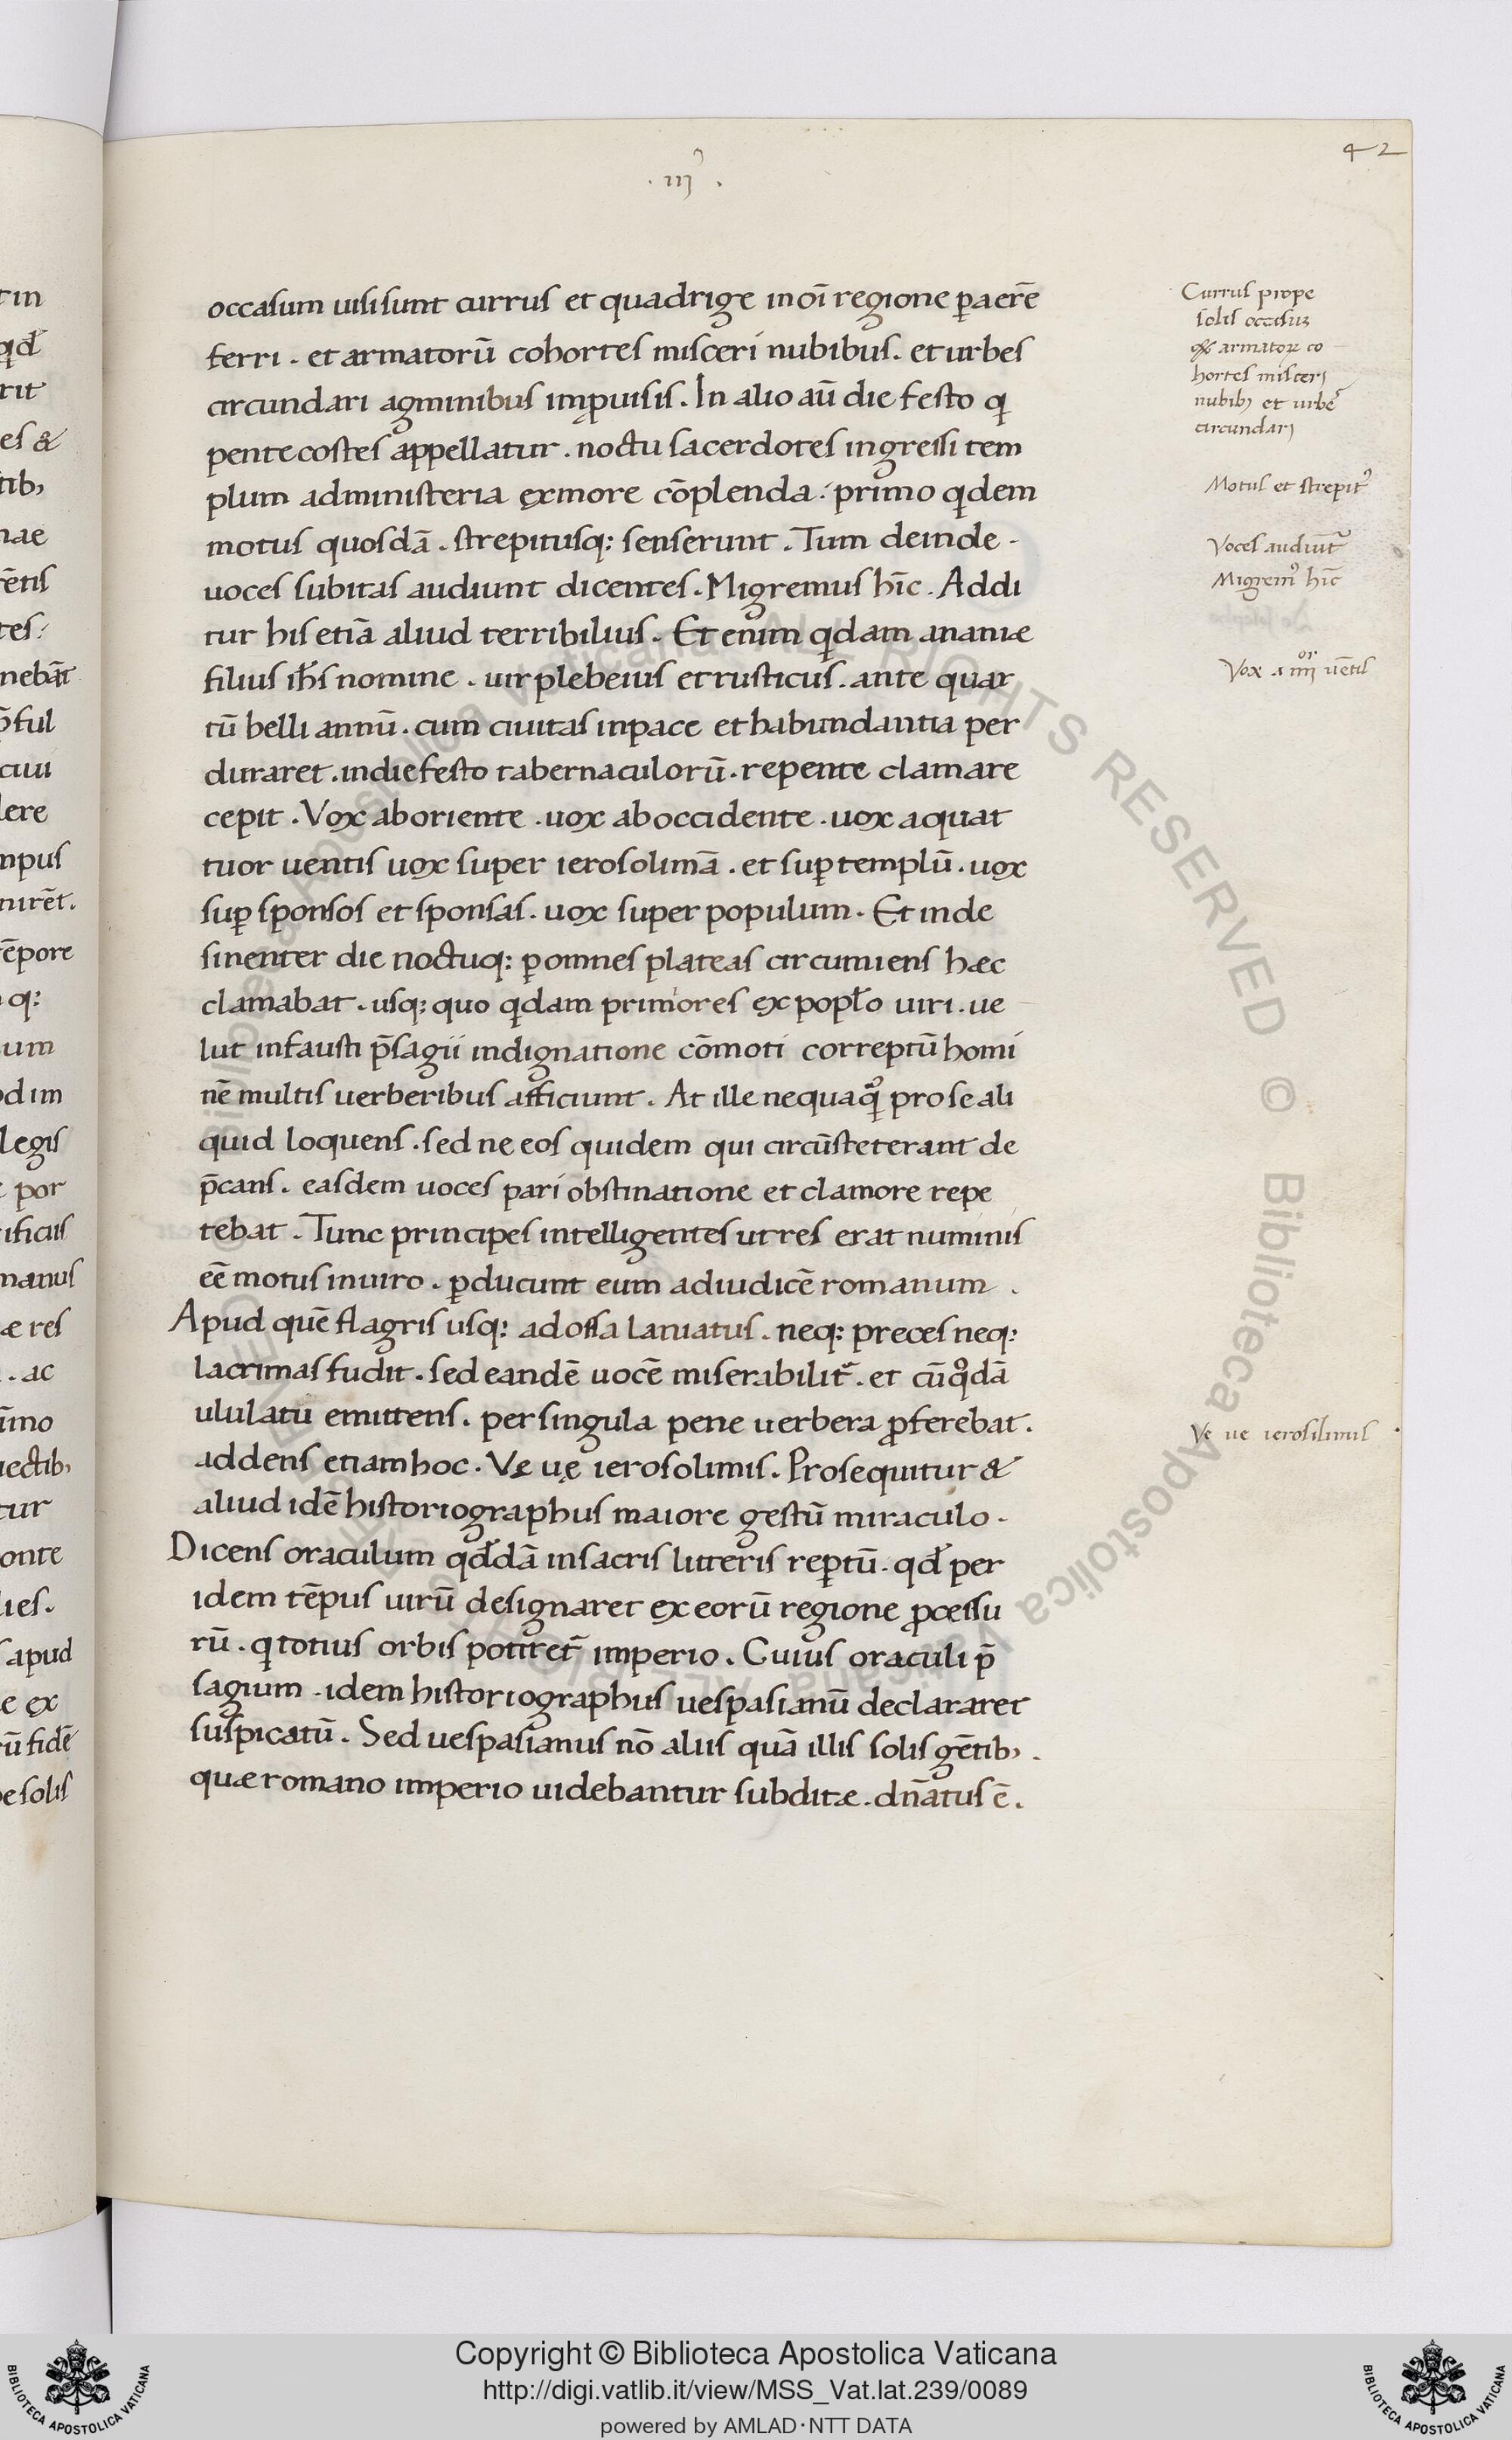 42
.iij.
occasum uisi sunt currus et quadrigę in oī regione ꝑ aerē
ferri . et armatorū cohortes misceri nubibus . et urbes
circundari agminibus imꝓuisis . In alio aū die festo q̨
pentecostes appellatur . noctu sacerdotes ingressi tem
plum ad ministeria ex more cōplenda : primo q̨dem
motus quosdā . strepitusq: senserunt . Tum deinde .
uoces subitas audiunt dicentes . Migremus hīc . Addi
tur his etiā aliud terribilius . Et enim q̨dam ananiæ
filius ih̄s nomine . uir plebeius et rusticus . ante quar
tū belli annū . cum ciuitas in pace et habundantia per
duraret . in die festo tabernaculorū . repente clamare
cepit . Vox ab oriente . uox ab occidente . uox a quat
tuor uentis uox super ierosolimā . et suꝑ templū . uox
suꝑ sponsos et sponsas . uox super populum . Et inde
sinenter die noctuq: ꝑ omnes plateas circumiens hæc
clamabat . usq: quo q̨dam primores ex popło uiri . ue
lut infausti p̄sagii indignatione cōmoti correptū homi
nē multis uerberibus afficiunt . At ille nequaꝙ̉ pro se ali
quid loquens . sed ne eos quidem qui circūsteterant de
p̄cans . easdem uoces pari obstinatione et clamore repe
tebat . Tunc principes intelligentes ut res erat numinis
eē motus in uiro . ꝑducunt eum ad iudicē romanum .
Apud quē flagris usq: ad ossa laniatus . neq: preces neq:
lacrimas fudit . sed eandē uocē miserabilit̄ . et cū qͦdā
ululatu emittens . per singula pene uerbera ꝓferebat .
addens etiam hoc . Vę uę ierosolimis . Prosequitur &
aliud idē historiographus maiore gestū miraculo .
Dicens oraculum qd̄dā in sacris litteris reꝑtū . qd̄ per
idem tēpus uirū designaret ex eorū regione ꝓcessu
rū . q̨ totius orbis potiret̄ imperio . Cuius oraculi p̄
sagium . idem historiographus uespasianū declararet
suspicatū . Sed uespasianus nō aliis quā illis solis gētib; .
quæ romano imperio uidebantur subditæ . dn̄atus ē .
Currus prope
solis occasuʒ
armatoꝝ co
hortes misceri
nubib; et urbes
circundari
Motus et strepitꝰ
Voces audiut̄
Migremꝰ hīc
Vox a iiij or uētis
Ve ue ierosilimis
Copyright © Biblioteca Apostolica Vaticana
http://digi.vatlib.it/view/MSS_Vat.lat.239/0089
powered by AMLAD·NTT DATA
BIBLIOTECA APOSTOLICA VATICANA
BIBLIOTECA APOSTOLICA VATICANA